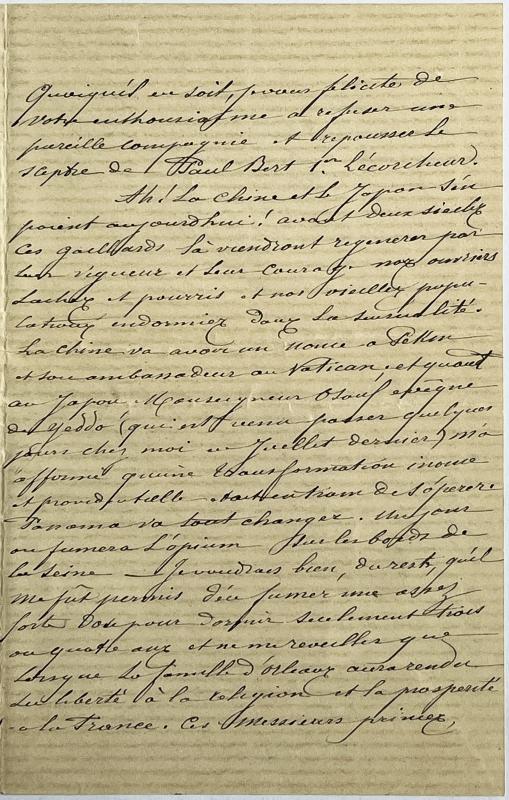 Quoiqu'il en soit, je vous félicite de
votre enthousiasme a refuser une
pareille compagnie et repousser le
sceptre de Paul Bert 1er L'écorcheur.
Ah! La Chine et le Japon s'en
aujourdhui! avant deux siecles
ces gaillards là viendront regenerer par
leur vigueur et leur courage nos ouvriers
Laches et pourris et nos vieilles popu-
lations endormies dans la sensualité.
La Chine va avoir un nonce a Pékin
et son ambassadeur au Vatican. et quant
au Japon, Monseigneur Osouf evêque
de Yeddo (qui est venu passer quelques
jours chez moi en Juillet dernier) m'a
affirmé qu'une transformation inouie
et providentielle etait en train de s'opérer.
Panama va tout changer. Un jour
on fumera l'opium sur les bords de
la Seine — Je voudrais bien, du reste, qu'il
me fût permis d'en fumer une assez
forte dose pour dormir seulement trois
ou quatre ans et ne me reveiller que
lorsque la famille d'Orleans aura rendu
la liberté à la religion et la prosperité
a la France. Ces Messieurs princes,